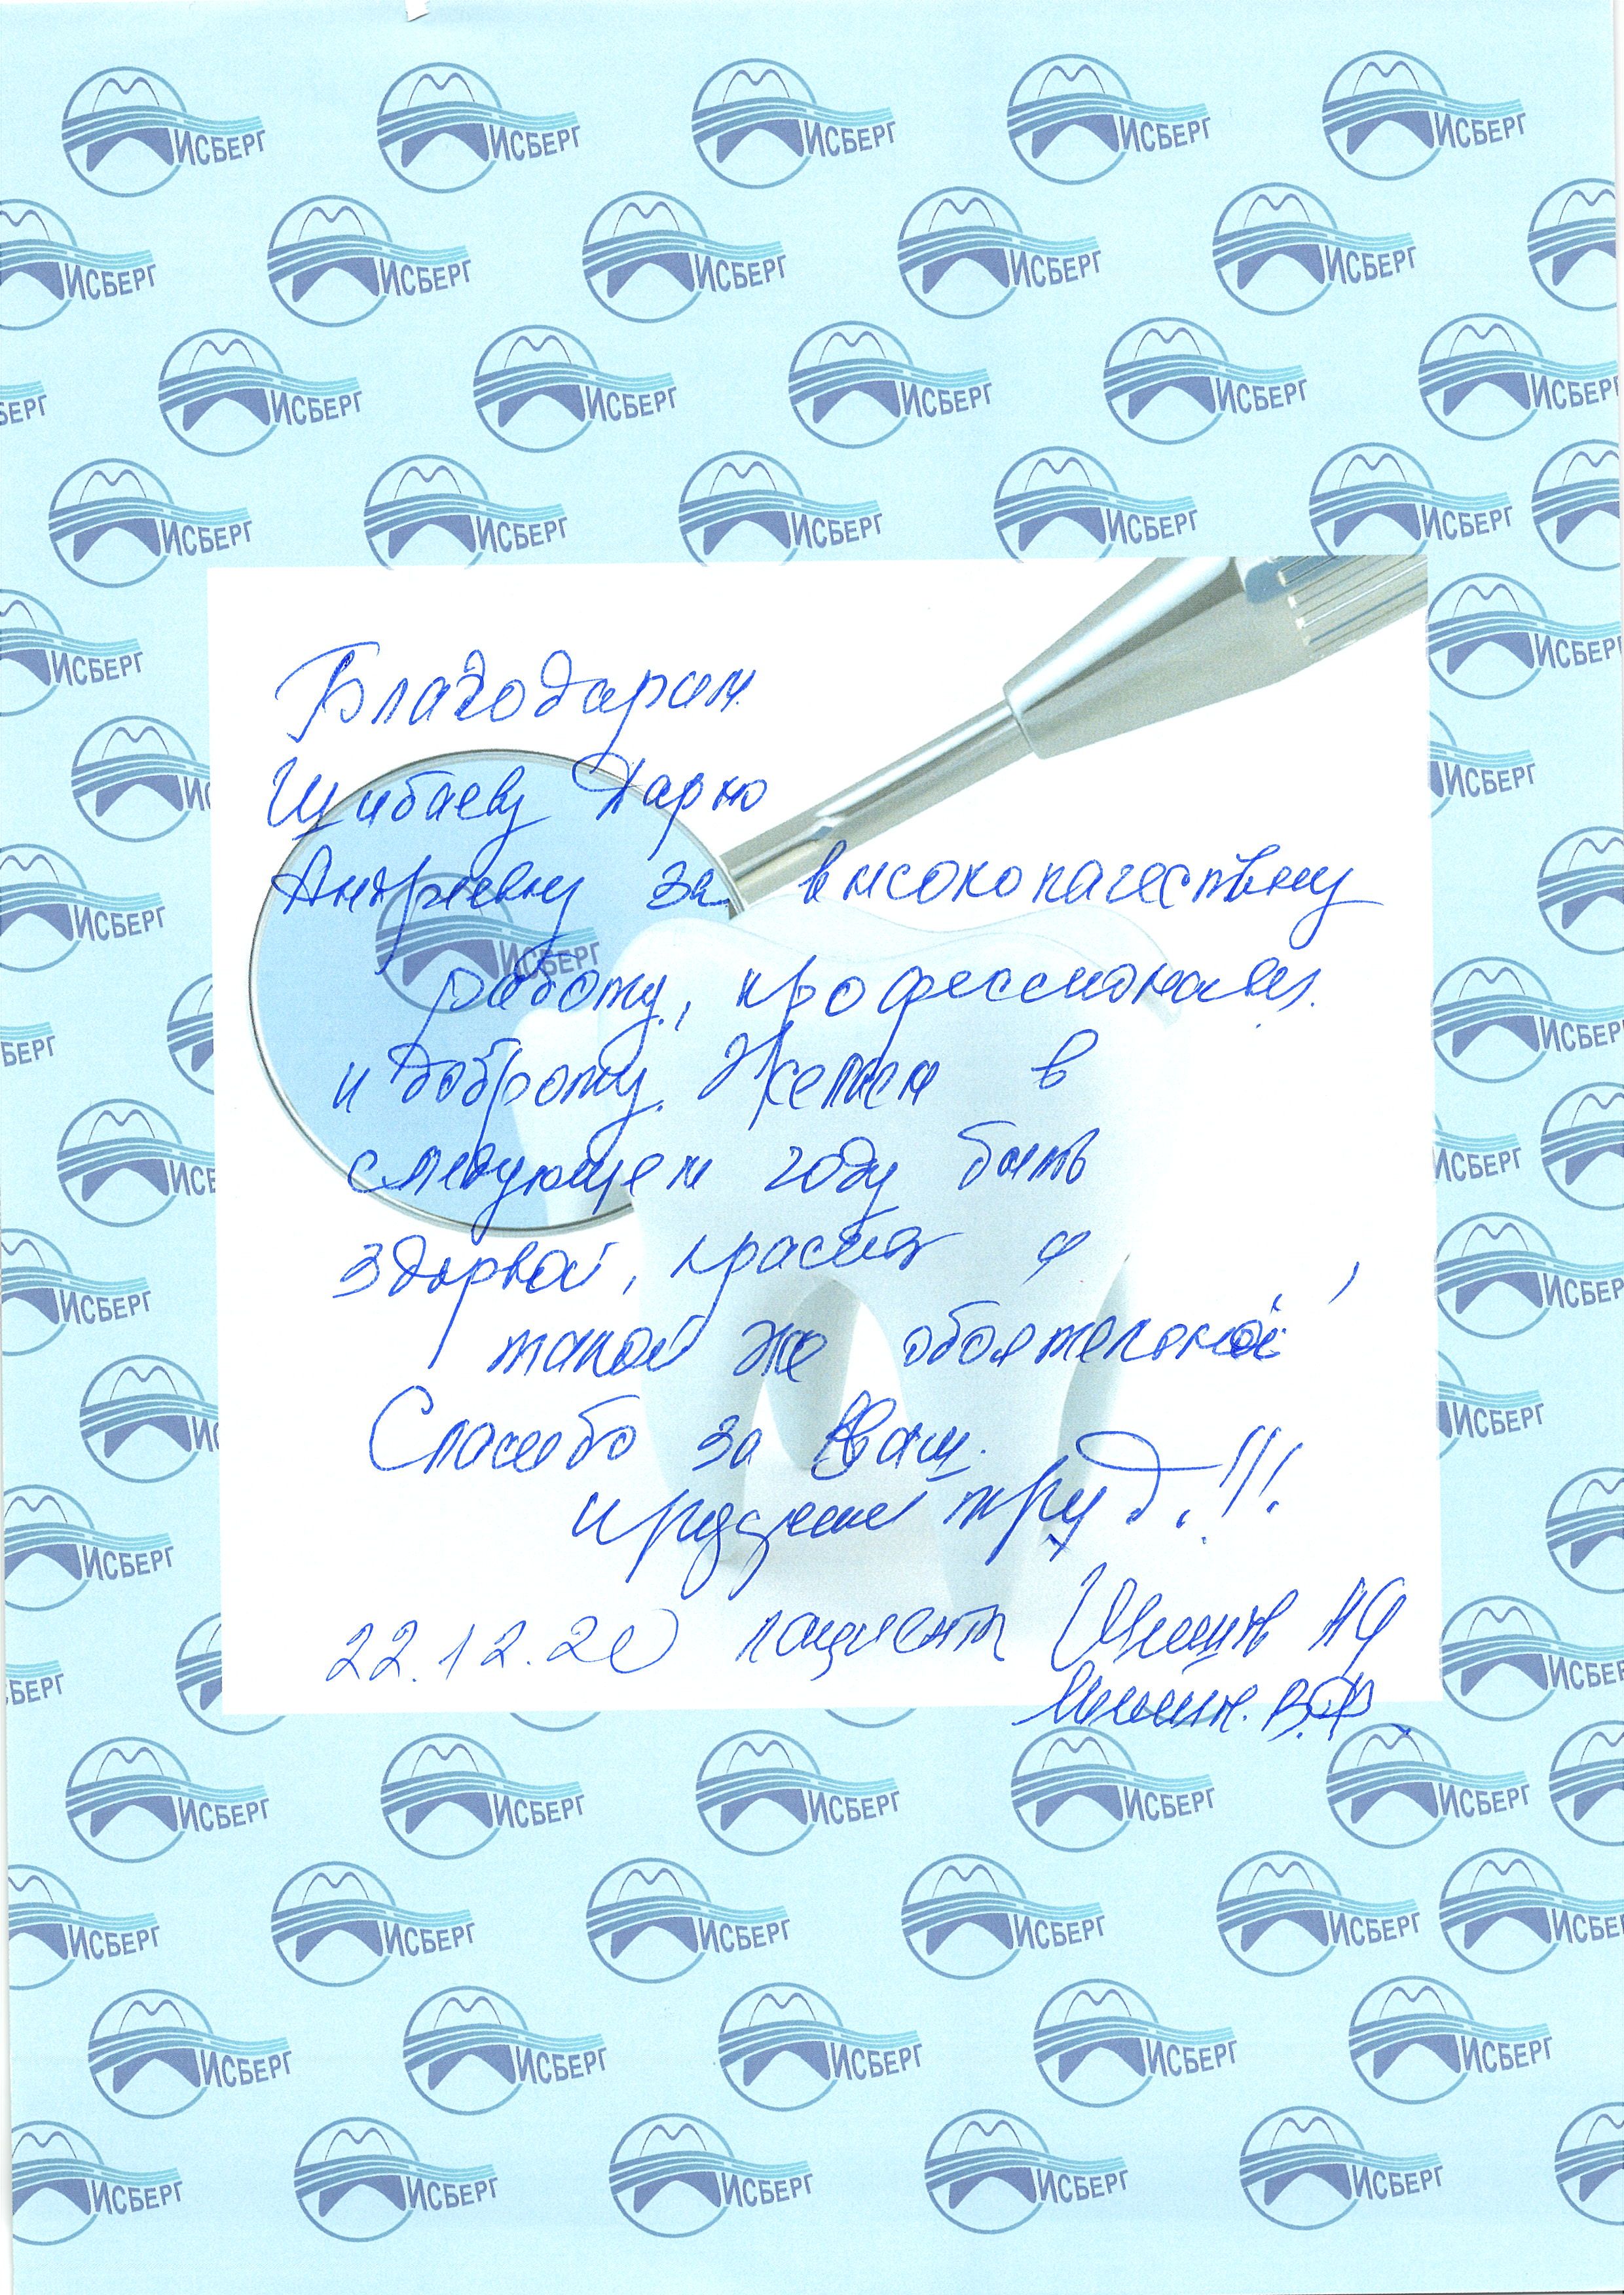 Благодарим
Щибаеву Дарю
Андреевну за высококачествену
работу, професссионализ.
и доброту. Желаем в
следующем году быть
здоровой, красивой
такой же обоятельной
Спасибо за Ваш
труд.!!!
22.12.20 пациент
В.Ф.
ИСБЕРГ